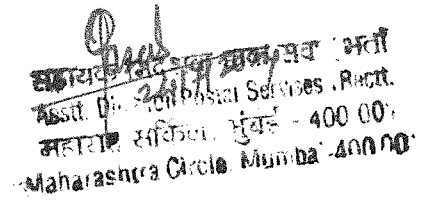 सहायक निदेशक डाक सेवा भर्ती
Asstt. Director Postal Services, Rectt.
महाराष्ट्र सर्किल, मुंबई - 400 001
Maharashtra Circle, Mumbai-400 001